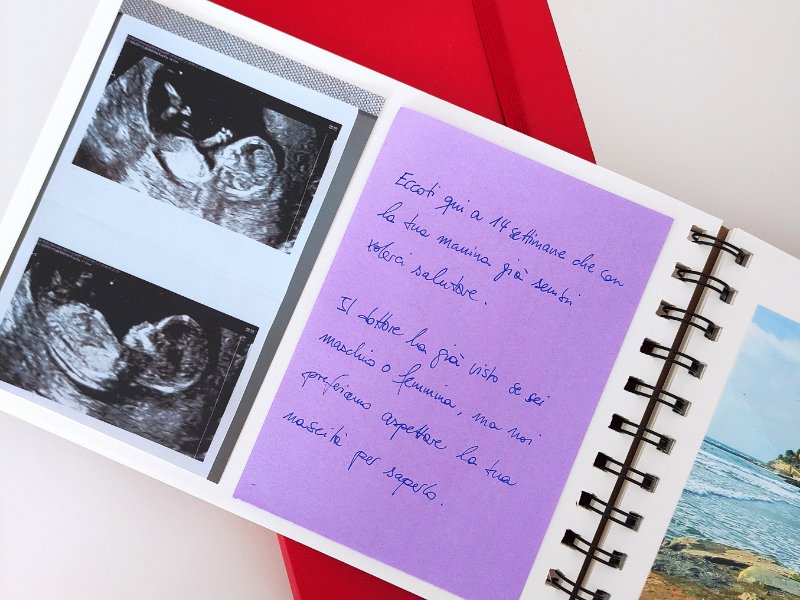 Eccoti qui a 14 settimane che con
la tua manina già sembri
volerci salutare.
Il dottore ha già visto se sei
maschio o femmina, ma noi
preferiamo aspettare la tua
nascità per saperlo.